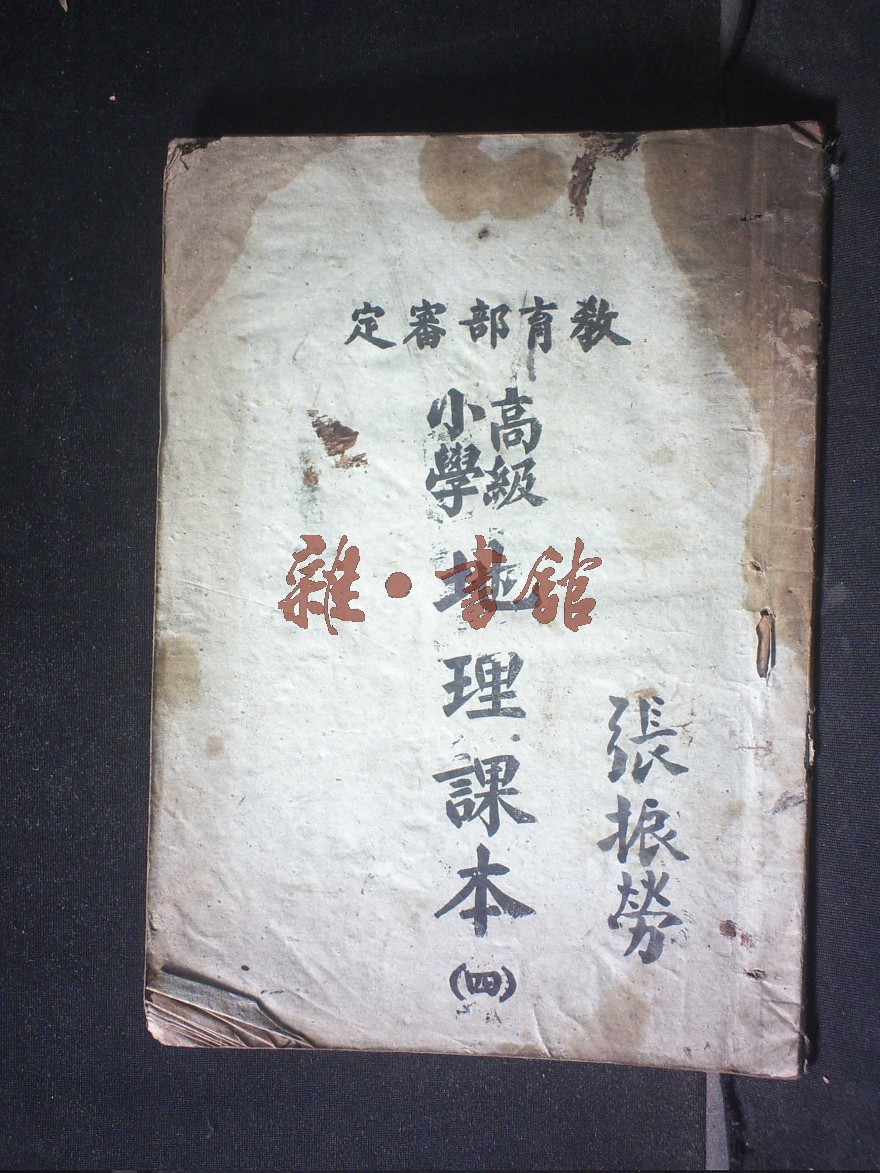 教育部審定
高級
小學
地理課本
(四)
張振勞
雜·書館